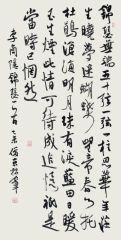 錦瑟無端五十弦一弦一柱思華年莊
生曉夢迷蝴蝶望帝春心托
杜鵑滄海月明珠有淚藍田日暖
玉生煙此情可待成追憶祇是
當時已惘然
李商隱錦瑟一首